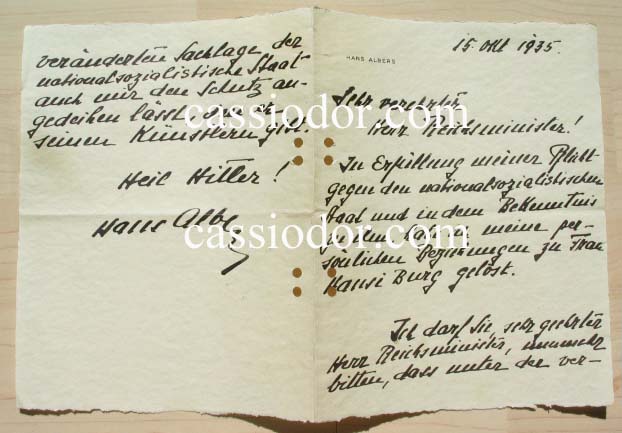 HANS ALBERS
15. Okt 1935.
Sehr verehrter
Herr Reichsminister!
In Erfüllung meiner Pflicht
gegen den nationalsozialistischen
Staat und in dem Bekenntnis
zu ihm habe ich meine per-
sönlichen Beziehungen zu Frau
Hansi Burg gelöst.
Ich darf Sie, sehr geehrter
Herr Reichsminister, nunmehr
bitten, dass unter der ver-
veränderten Sachlage der
nationalsozialistische Staat
auch mir den Schutz an-
gedeihen lässt, den er
seinen Künstlern gibt.
Heil Hitler!
Hans Albers
cassiodor.com
cassiodor.com